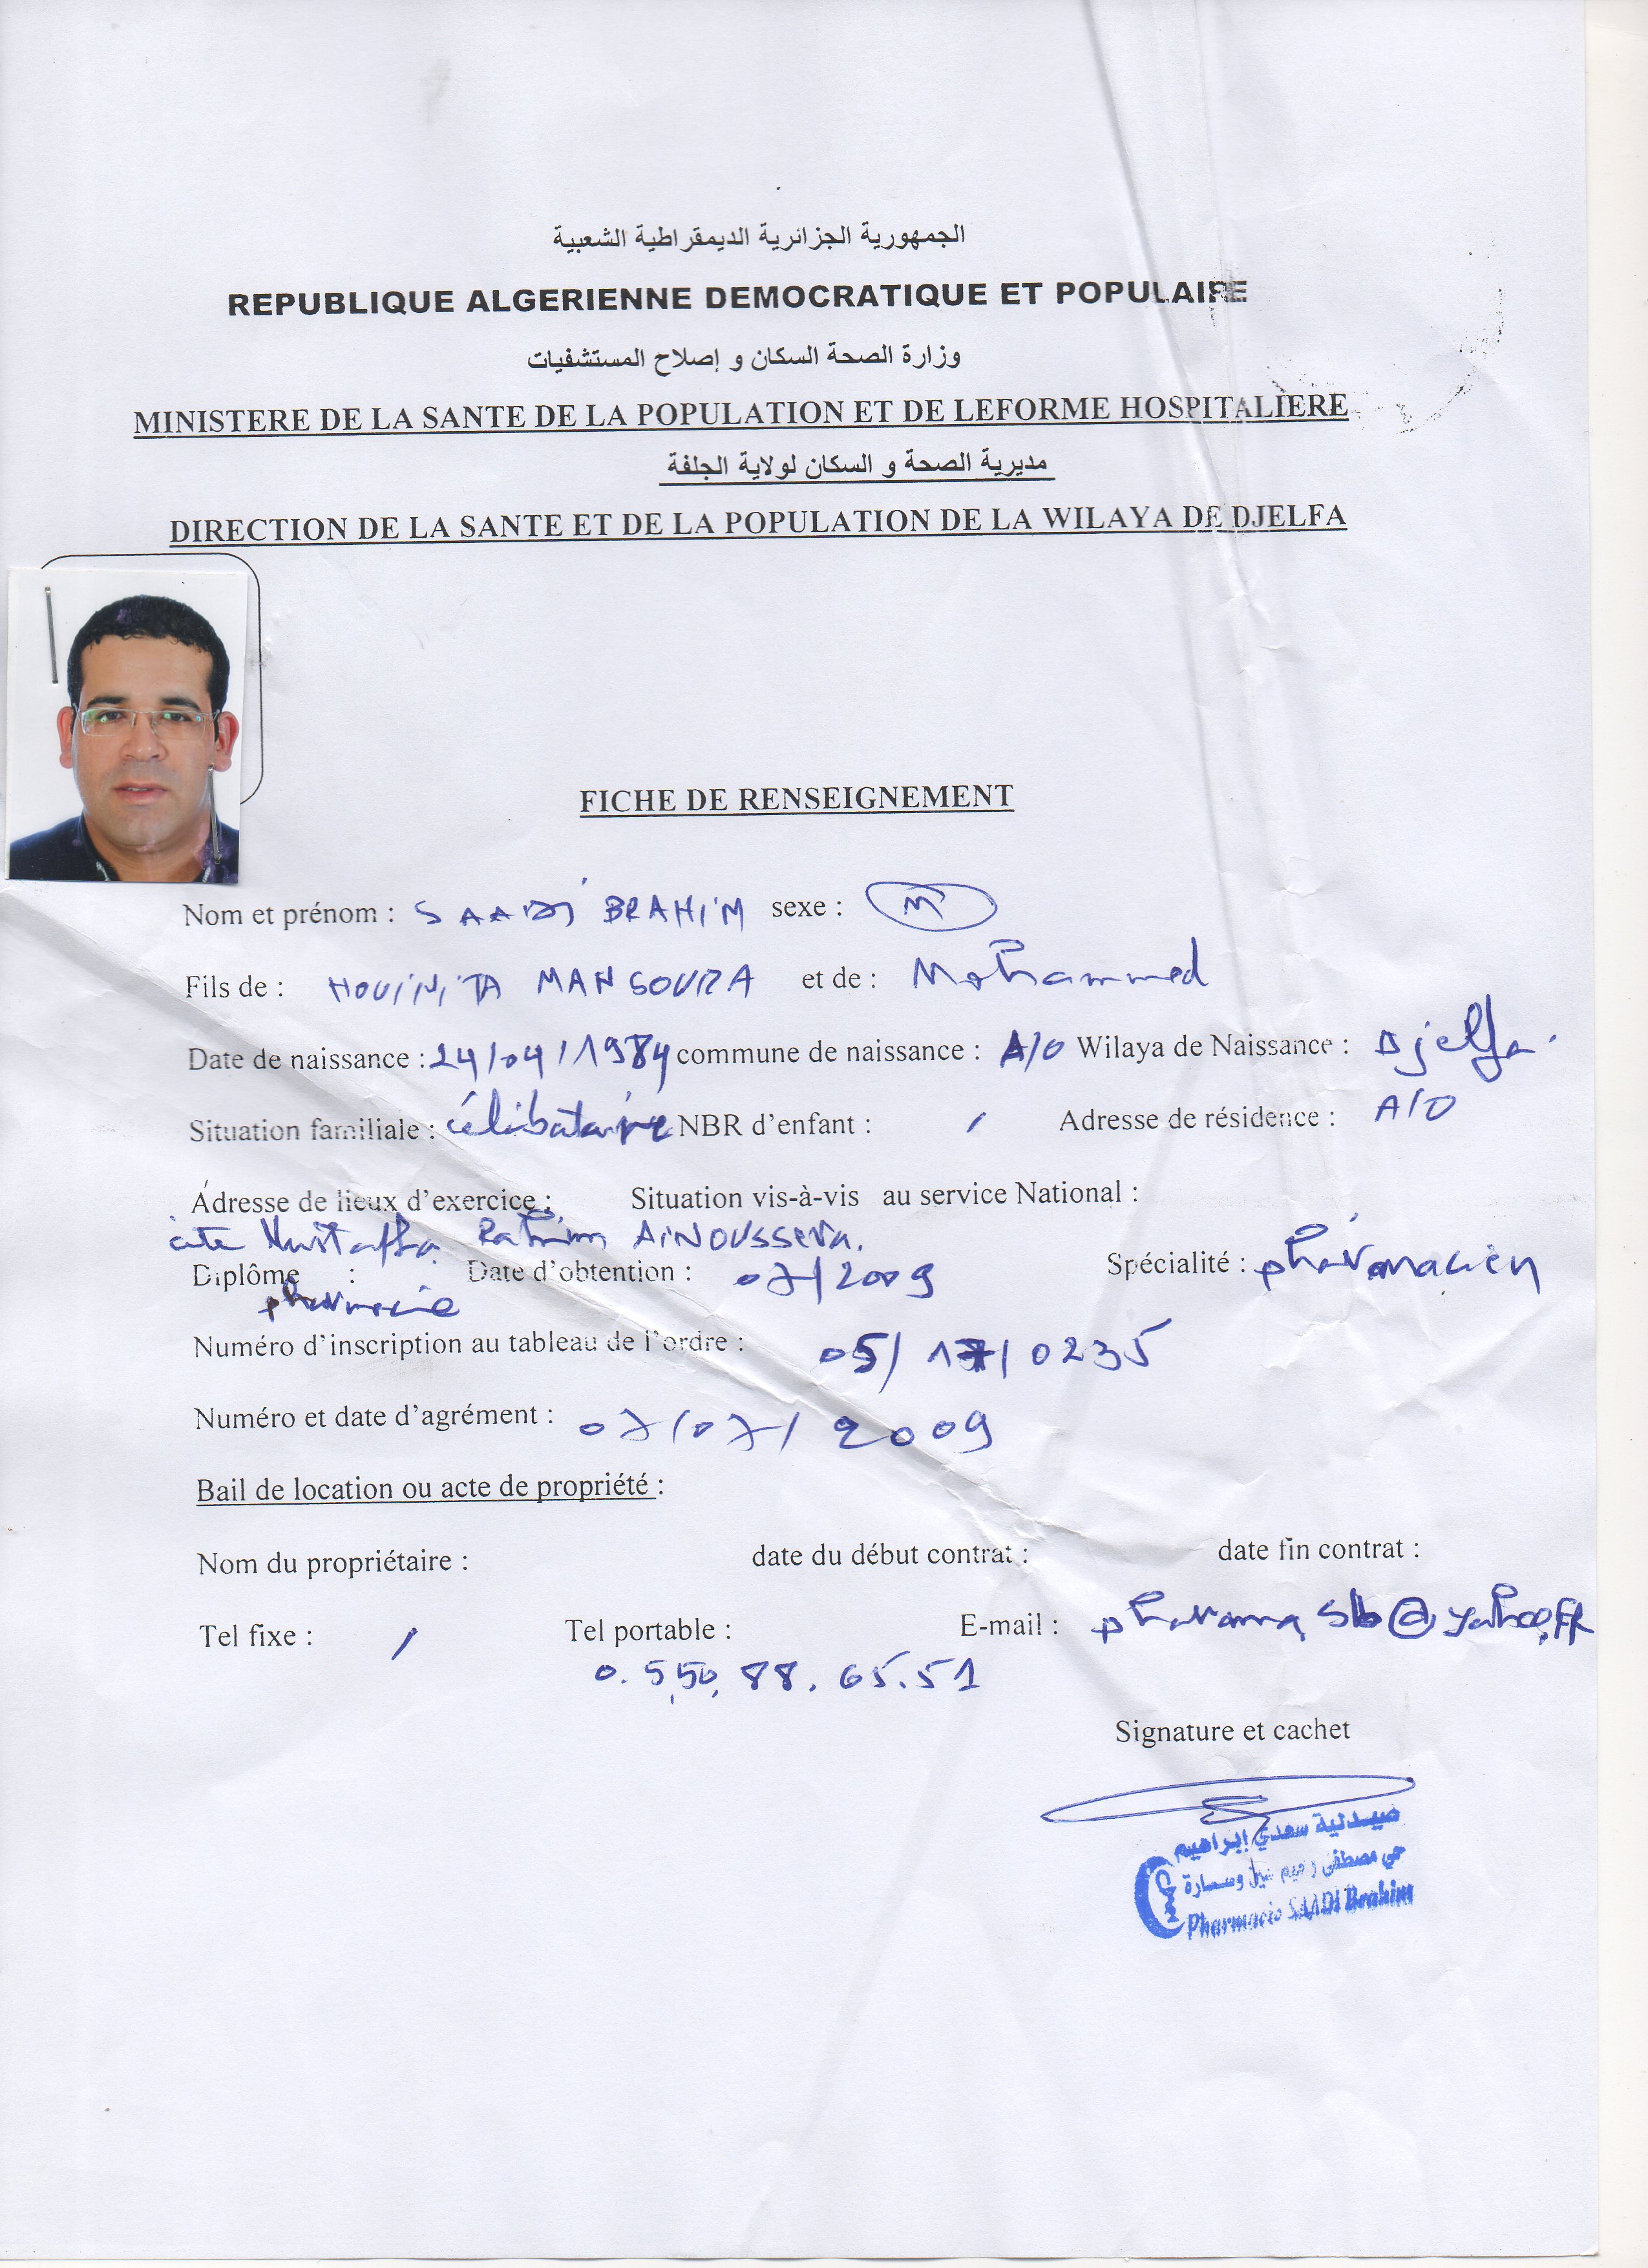 الجمهورية الجزائرية الديمقراطية الشعبية
REPUBLIQUE ALGERIENNE DEMOCRATIQUE ET POPULAIRE
وزارة الصحة السكان و إصلاح المستشفيات
MINISTERE DE LA SANTE DE LA POPULATION ET DE LEFORME HOSPITALIERE
مديرية الصحة و السكان لولاية الجلفة
DIRECTION DE LA SANTE ET DE LA POPULATION DE LA WILAYA DE DJELFA
FICHE DE RENSEIGNEMENT
Nom et prénom : SAADI BRAHIM sexe : M
Fils de : HOUINITA MANSOURA et de : Mohammed
Date de naissance : 24/04/1984 commune de naissance : A/O Wilaya de Naissance : Djelfa
Situation familiale : célibataire NBR d'enfant : / Adresse de résidence : A/O
Adresse de lieux d'exercice : Situation vis-à-vis au service National :
cite Mustapha Rahim AINOUSSERA.
Diplôme : Date d'obtention : 07/2009 Spécialité : pharmacien
pharmacie
Numéro d'inscription au tableau de l'ordre : 05/17/0235
Numéro et date d'agrément : 07/07/2009
Bail de location ou acte de propriété :
Nom du propriétaire : date du début contrat : date fin contrat :
Tel fixe : / Tel portable : E-mail : @yahoo.FR
0.550.88.65.51
Signature et cachet
صيدلية سعدي إبراهيم
حي مصطفى رحيم عين وسارة
Pharmacie SAADI Brahim